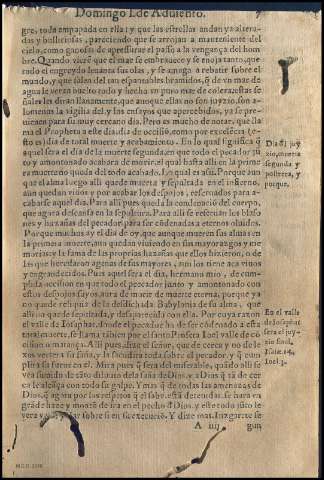 Domingo I. de Aduiento. 7
gre, toda empapada en ella: y que las estrellas andan ya altera-
das y bulliciosas, pareciendo que se arrojan a mantenerse del
cielo, como ganosas de apressurar el passo a la vengança del hom
bre. Quando viere que el mar se embrauece y se enoja tanto, que
todo el engreydo leuanta sus olas, y se amaga a rebatir sobre el
mundo, y que salen del tan espantables bramidos, q̃ de vn mar de
agua le veran buelto todo y hecho vn puro mar de colera: estas se
ñales les diran llanamente, que aunque ellas no son juyzio, son a-
lomenos la vigilia del, y los ensayos que apercebidas, ya se pre-
uienan para su muy cercano dia. Pero es mucho de notar, que lla
ma el Propheta a este dia, dia de occisiõ, como por excelẽcia (es-
to es) dia de total muerte y acabamiento. En lo qual significa q̃
aquel sera el dia de la muerte segunda, en que todo el pecador ju
to y amontonado acabara de morir, el qual hasta alli en la prime
ra muerte no queda del todo acabado. Lo qual es assi. Porque aun
que el alma luego alli queda muerta y sepultada en el infierno,
aun quedan viuos y por acabar los despojos, reseruados para a-
cabarse aquel dia. Para alli pues queda la condenaciõ del cuerpo,
que agora descansa en la sepultura. Para alli se reseruan los blaso
nes y hazañas del pecador para ser cõdenadas a eternos oluidos.
Porque muchas ay el dia de oy, que aunque mueren sus almas en
la primera muerte, aun quedan viuiendo en sus mayorazgos y me
morias: y la fama de las proprias hazañas que ellos hizieron, o de
las que heredaron agenas de sus mayores, aun los tiene aca viuos
y engrandecidos. Pues aquel sera el dia, hermano mio, de cum-
plida occision en que todo el pecador junto y amontonado con
estos despojos suyos, aura de morir de muerte eterna, porque ya
no quede rei mas de la desdichada Babylonia de su alma, que
alli no quede sepultada, y desaparecida con ella. Por cuya razon
el valle de Iosaphat, donde el pecador ha de ser cõdenado a esta
total muerte, se llama tãbien por el santo Propheta Ioel valle de oc
cision o matança. Alli pues, dize el señor, que de cerca y no de le
xos vertera su saña, y la sacudira toda sobre el pecador, y q̃ cum
plira su furor en el. Mira pues q̃ sera del miserable, quãdo alli se
vea sumido de tãto diluuio de la saña de Dios, y a Dios q̃ tã de cer
ca le alcãça con todo su golpe. Y mas q̃ de todas las amenazas de
Dios, q̃ agora por los respetos q̃ el sabe, està detenidas, se hara vn
grãde haze y montõ de ira en el pecho de Dios, y este todo jũto le
vera ya sobre si en su execuciõ. Y dize mas. Iuzgarte se
A iiij gun
Dia del juy
zio, muerte
segunda y
postrera, y
porque.
En el valle
de Iosaphat
sera el juy-
zio final.
Ioel. 3.